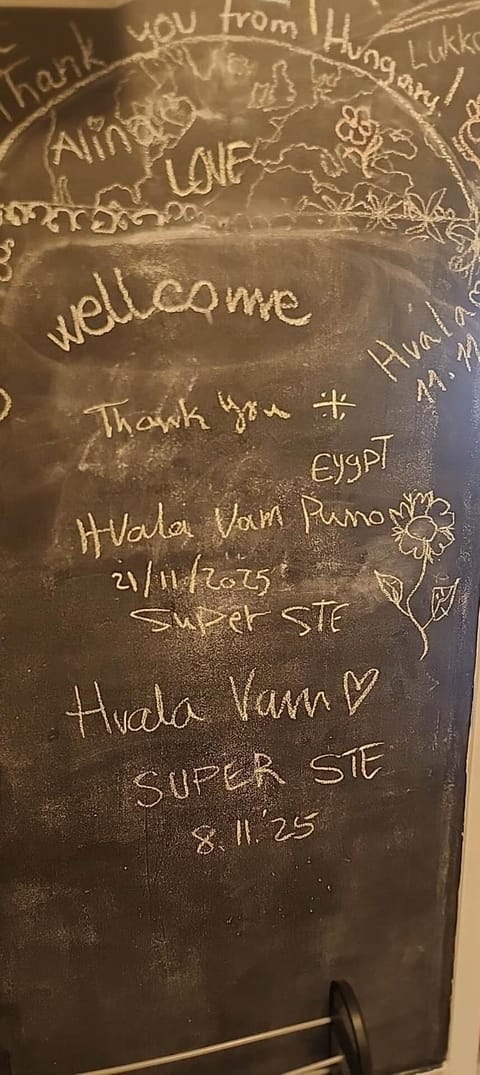 Thank you from Hungary!
Lukko
Alina
LOVE
wellcome
Hvala
11.11
Thank you
EYgPT
HVala Vam Puno
21/11/2025
SuPer STE
Hvala Vam
SUPER STE
8.11.'25